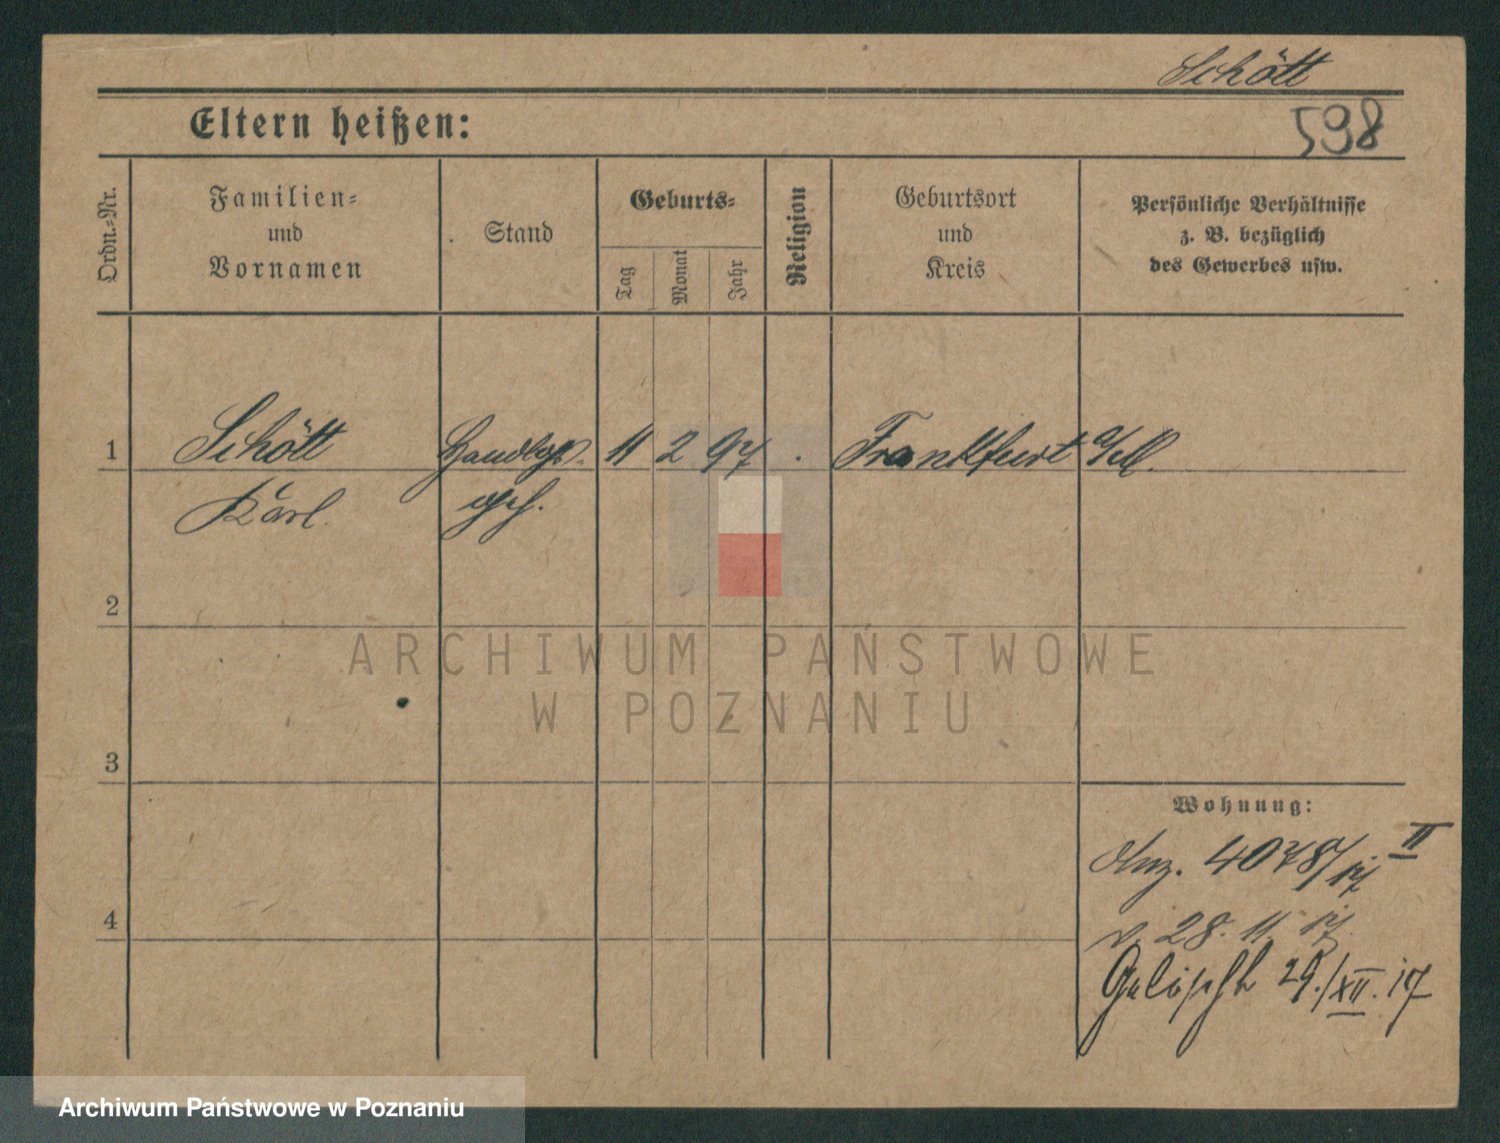 Schött
Eltern heißen:
598
Ordn.-Nr.
Familien-
und
Vornamen
Stand
Geburts-
Tag
Monat
Jahr
Religion
Geburtsort
und
Kreis
Persönliche Verhältnisse
z. B. bezüglich
des Gewerbes usw.
1
Schött
Handlgs.
11 2 97
Frankfurt
Karl.
geh.
2
ARCHIWUM PAŃSTWOWE
W POZNANIU
3
Wohnung:
4078/17 II
4
v. 28. 11. 17.
Gelöscht 29./XII. 17
Archiwum Państwowe w Poznaniu